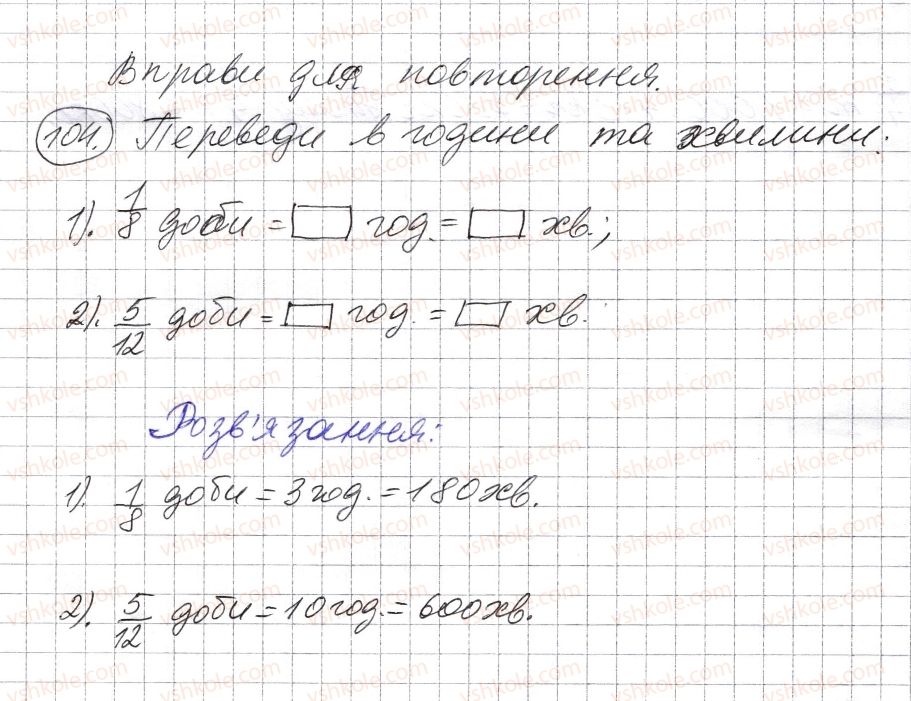 Вправи для повторення.
104. Переведи в години та хвилини:
1). 1/8 доби = □ год. = □ хв.;
2). 5/12 доби = □ год. = □ хв.
Розв'язання:
1). 1/8 доби = 3 год. = 180 хв.
2). 5/12 доби = 10 год. = 600 хв.
vshkole.com